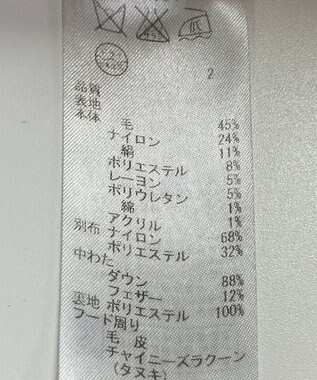 2
品質
表地
本体
毛 45%
ナイロン 24%
絹 11%
ポリエステル 8%
レーヨン 5%
ポリウレタン 5%
綿 1%
アクリル 1%
別布 ナイロン 68%
ポリエステル 32%
中わた
ダウン 88%
フェザー 12%
裏地 ポリエステル 100%
フード周り
毛皮
チャイニーズラクーン
(タヌキ)